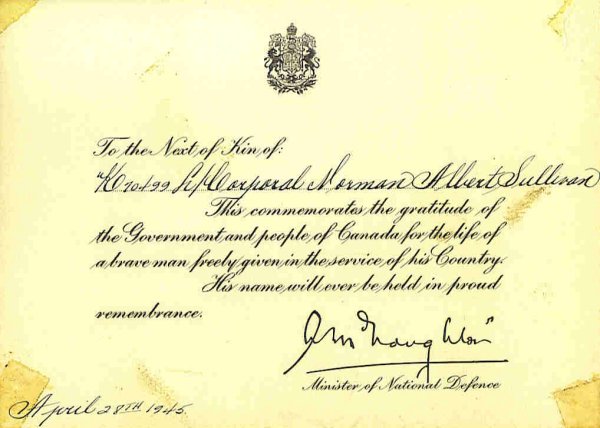 To the Next of Kin of:
"K70499 L/Corporal Norman Albert Sullivan
This commemorates the gratitude of
the Government and people of Canada for the life of
a brave man freely given in the service of his Country.
His name will ever be held in proud
remembrance.
Minister of National Defence
April 28TH 1945.